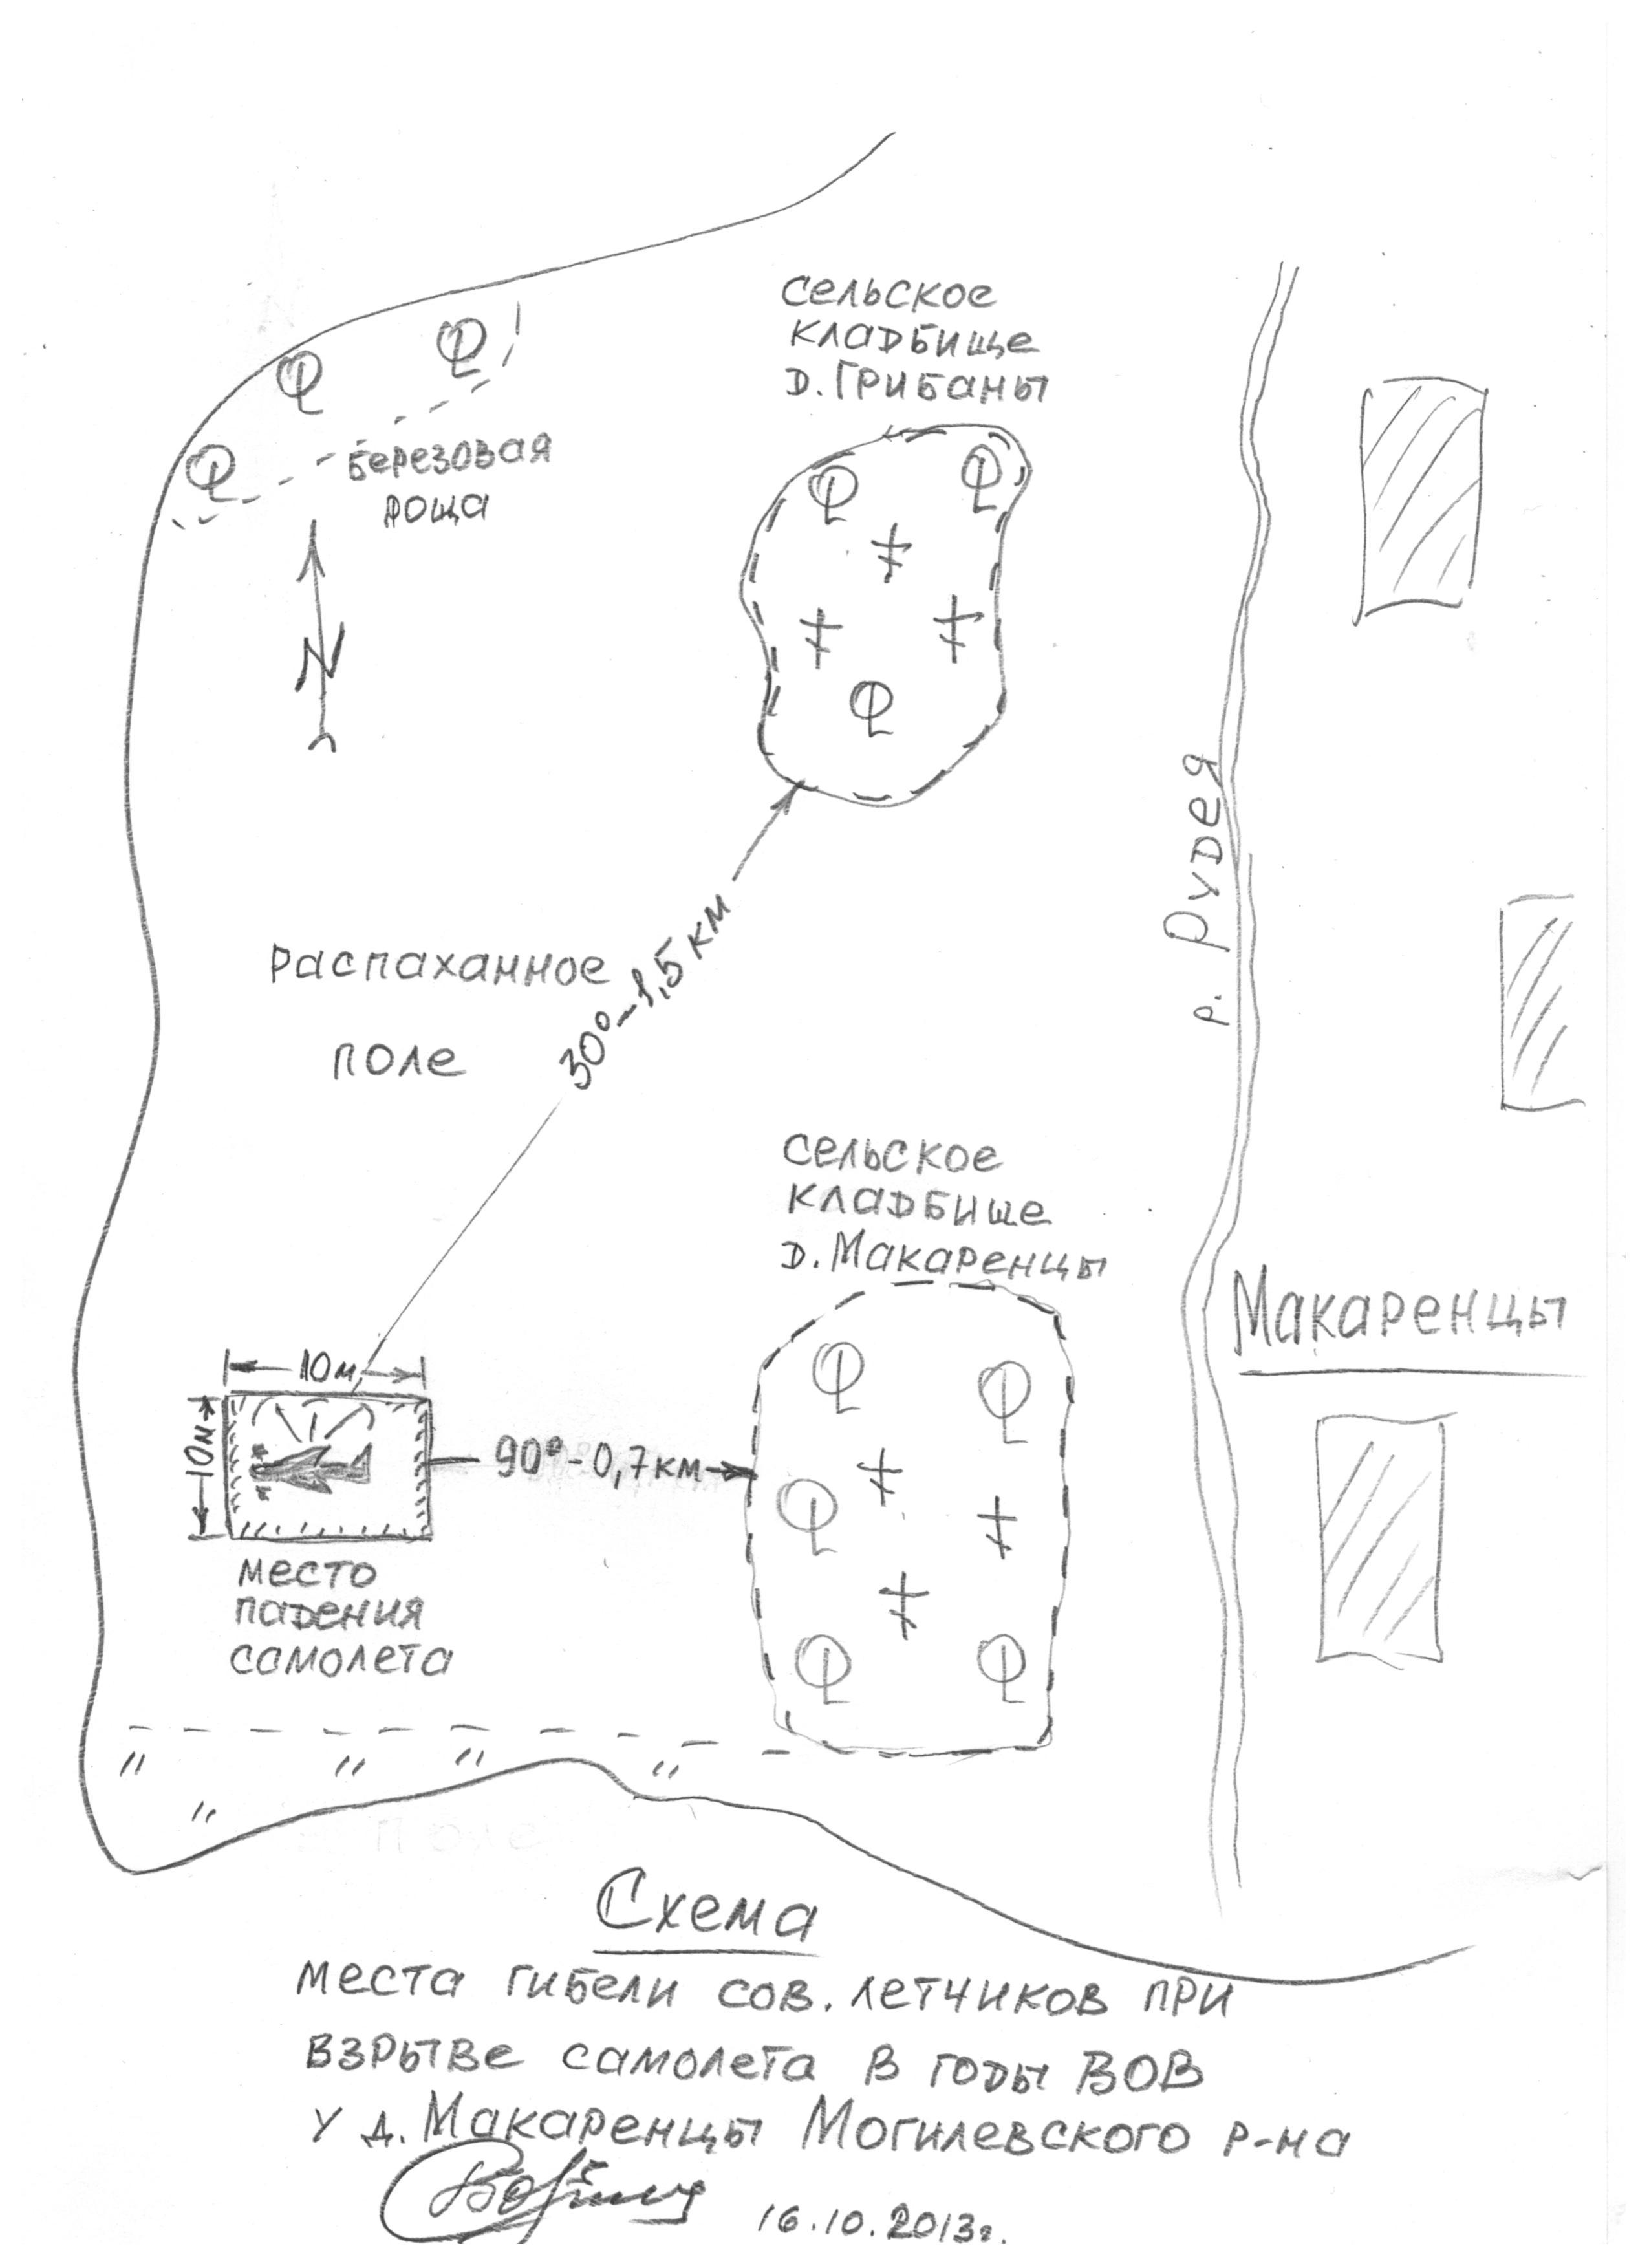 сельское
кладбище
д. Грибаны
березовая
роща
N
р. Рудея
распаханное
поле
30°-1,5 км
сельское
кладбише
д. Макаренцы
Макаренцы
10м
10м
90°-0,7 км
место
падения
самолета
Схема
места гибели сов. летчиков при
взрыве самолета в годы ВОВ
у д. Макаренцы Могилевского р-на
16.10.2013г.